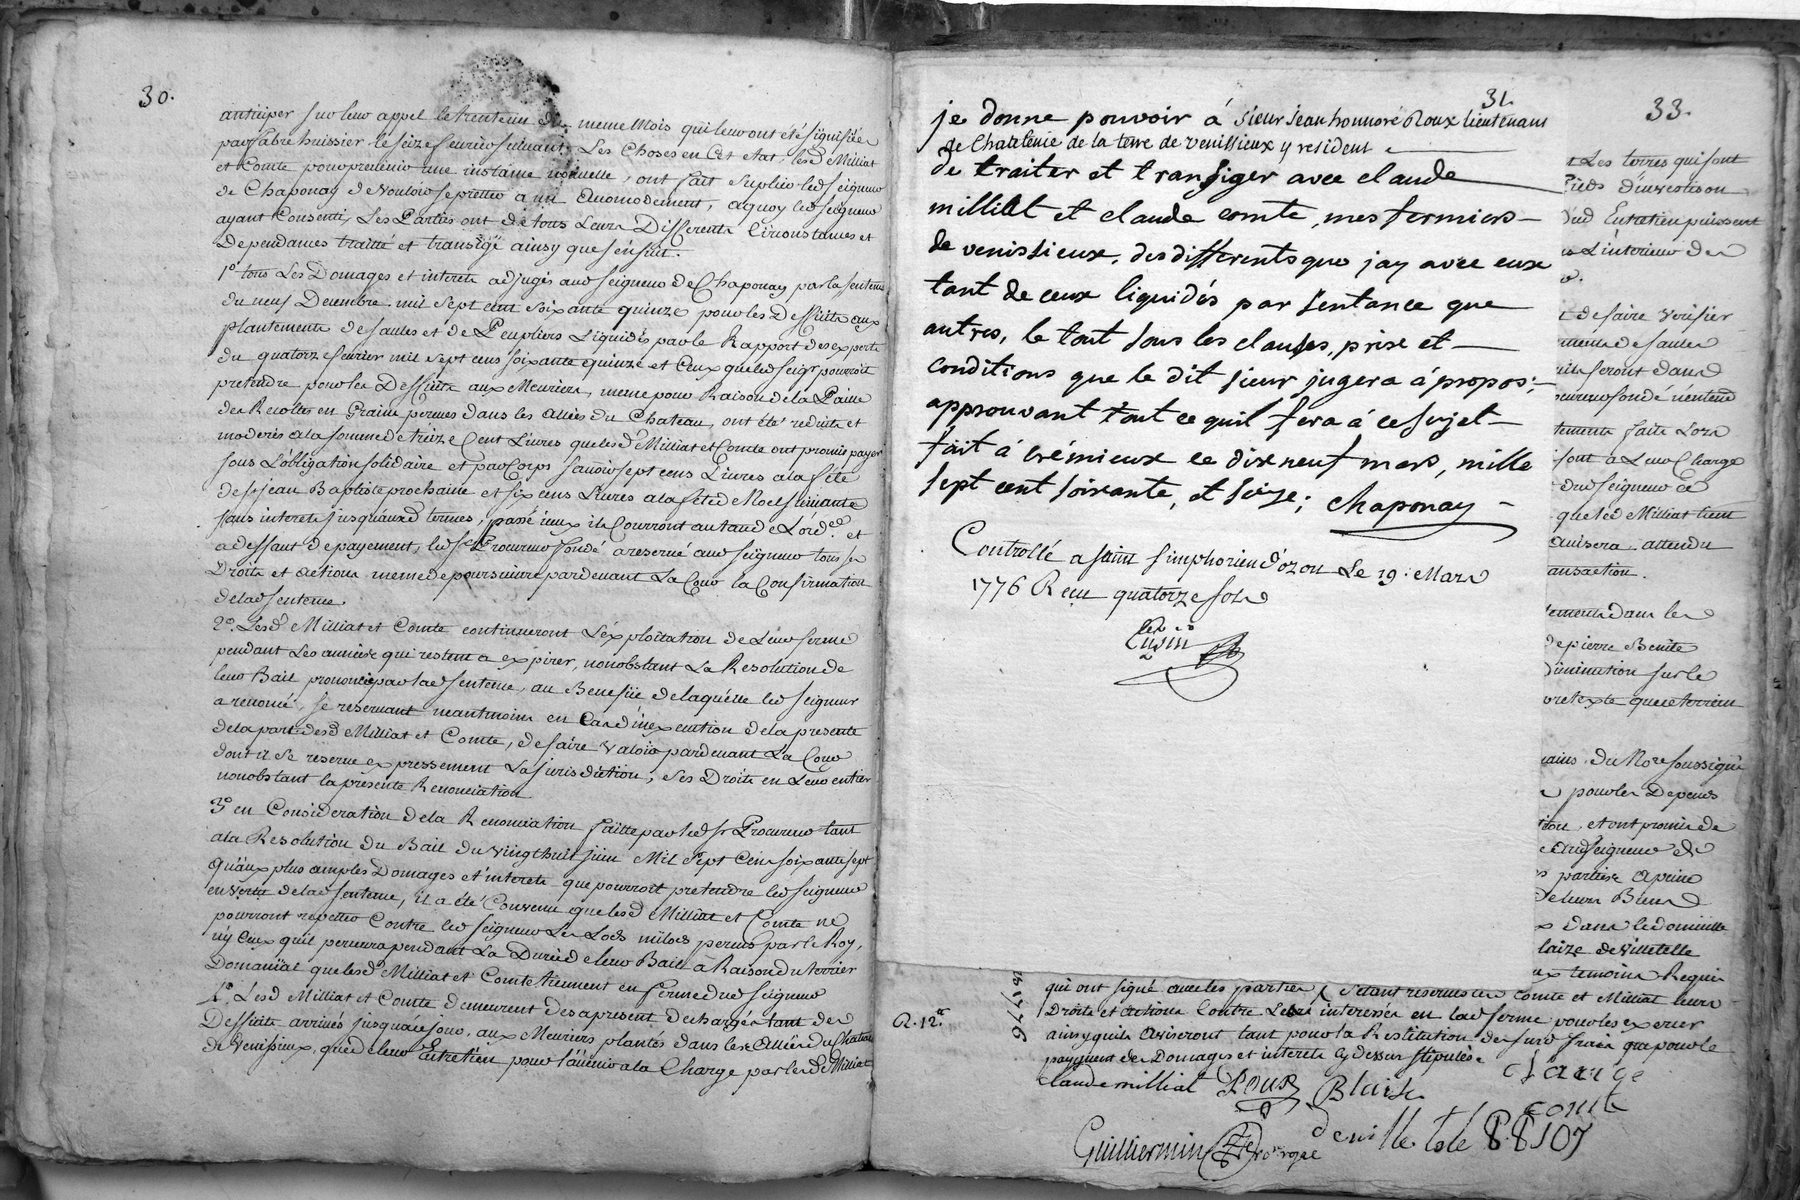 30.
anticiper sur leur appel le trentieme du meme Mois qui leur ont été signifiée
par fabre huissier le seize fevrier suivant. Les Choses en Cet etat, lesd Milliat
et Comte pour prevenir une instance, ont fait suplier led seigneur
de Chaponay de vouloir se preter a un accomodement, a quoy led seigneur
ayant Consenti, Les Parties ont de tous Leurs Differents Circonstances et
Dependances traitté et transigé ainsy que s'ensuit.
1º tous Les Domages et interets adjugés aud seigneur de Chaponay par la sentence
du neuf Decembre mil sept cent soixante quinze pour les Defficits aux
plantements de saules et de Peupliers Liquidés par le Rapport des experts
du quatorze fevrier mil sept cens soixante quinze et Ceux que led seigr pourroit
pretendre pour les Defficits aux Meuriers, meme pour Raison de la Paille
des Recoltes en Graine, perçues dans les allées du Chateau, ont été reduits et
moderés a la somme de treize Cent Livres que lesd Milliat et Comte ont promis payer
sous L'obligation solidaire et par Corps savoir sept cens Livres a la fete
de st jean Baptiste prochaine et six cens Livres a la fete de Noel suivante
sans interets jusqu'auxd termes, passé iceux ils Courront au taux de L'ord.ce et
a deffaut de payement, led sr Procureur fondé a reservé aud seigneur tous ses
Droits et actions meme de poursuivre pardevant La Cour la Confirmation
de lad sentence.
2º. Lesd Milliat et Comte continueront L'exploitation de Leur ferme
pendant Les années qui restent a expirer, nonobstant La Resolution de
leur Bail prononcée par lad sentence, au Benefice de laquelle led seigneur
a renoncé, se reservant neantmoins en Cas d'inexecution de la presente
de la part desd Milliat et Comte, de faire valoir pardevant La Cour
dont il se reserve expressement La jurisdiction, ses Droits en Leur entier
nonobstant la presente Renonciation
3º en Consideration de la Renonciation faitte par led sr Procureur tant
a la Resolution du Bail du vingt huit juin Mil sept Cens soixante sept
qu'aux plus amples Domages et interets que pourroit pretendre led seigneur
en vertu de lad sentence, il a été Convenu que lesd Milliat et Comte ne
pourront repetter Contre led seigneur Les Lods milods perçus par le Roy,
n'y Ceux qu'il percevra pendant La Durée de leur Bail à Raison du terrier
Domanïal que lesd Milliat et Comte tiennent en ferme dud seigneur
4º. Lesd Milliat et Comte demeurent des apresent dechargés tant des
Defficits arrivés jusqu'a ce jour, aux Meuriers plantés dans les allées du Chateau
de Venissieux, que de leur Entretien pour l'avenir a la Charge par lesd Milliat
31.
je donne pouvoir á sieur jean honnoré Roux lieutenant
de Chatelenie de la terre de venissieux y resident
de traiter et transiger avec claude
milliat et claude comte, mes fermiers
de venissieux, des differents que jay avec eux
tant de ceux liquidés par sentance que
autres, le tout sous les clauses, prix et
conditions que le dit sieur jugera á propos;
approuvant tout ce quil fera á ce sujet
fait á crémieux ce dix neuf mars, mille
sept cent soixante et seize; chaponay
Controllé a saint simphorien d'ozon Le 19. Mars
1776 Reçu quatorze sols
33.
t Les terres qui sont
Pieds d'inscotison
d'ud Entretien puissent
L'interieur des
t de faire verifier
ments de saules
seront dans
fondé n'entend
tements faits Lors
sont a Leur Charge
dud seigneur de
que led Milliat tient
avisera. attendu
ansaction.
ements dans les
de pierre Benite
diminution sur le
pretexte que ce terrein
mains du Nore soussigné
pour les Depens
ition, et ont promis de
aud seigneur de
parties a peine
de leurs Biens
dans le domicile
laize de Villetelle
temoins Requis
qui ont signé avec les parties, s'étant reservés les Comte et Milliat leurs
Droits et actions Contre Les interessés en lad ferme pour les exercer
ainsy quils aviseront tant pour la Restitution desfurd frais que pour le
payement des Domages et interets cy dessus stipulés
R. 12.s
1776
claude milliat Roux Blaise claude
comte
Guilliermin de villetele